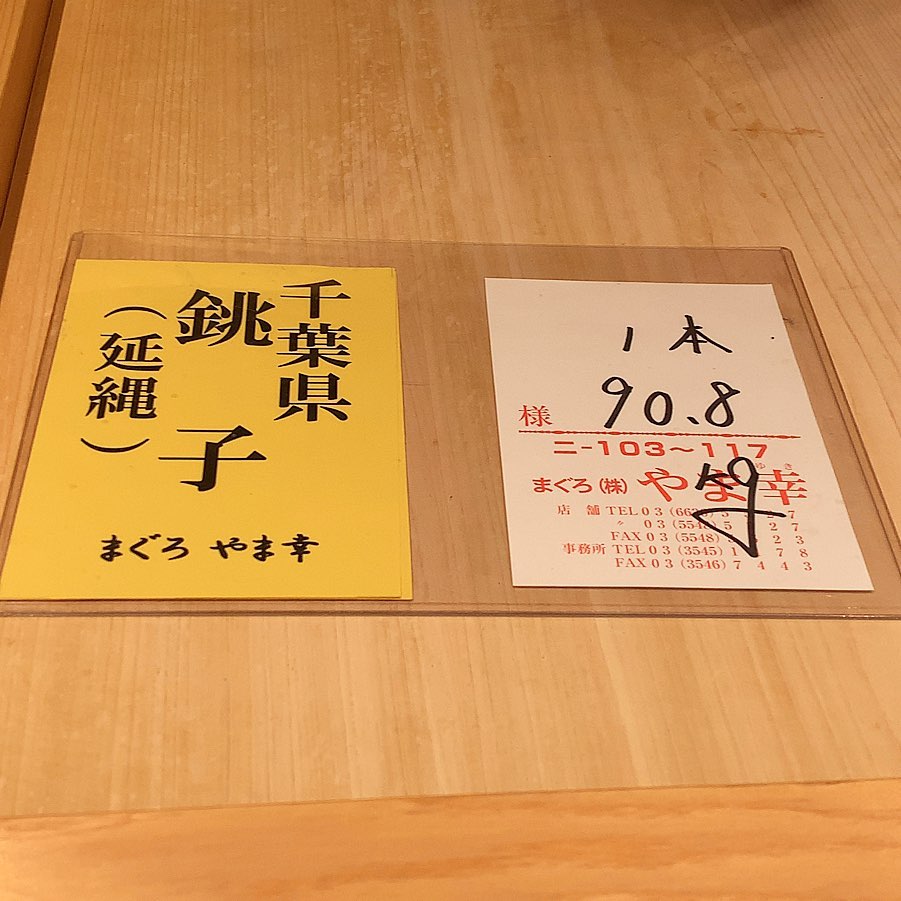 千葉県
銚子
（延縄）
まぐろ やま幸
1本
90.8
様
ニ-103〜117
まぐろ（株）やま幸
ゆき
店舗 TEL03
〃 03 (5548) 5
FAX03 (5548)
事務所 TEL03 (3545) 1
FAX03 (3546) 7443